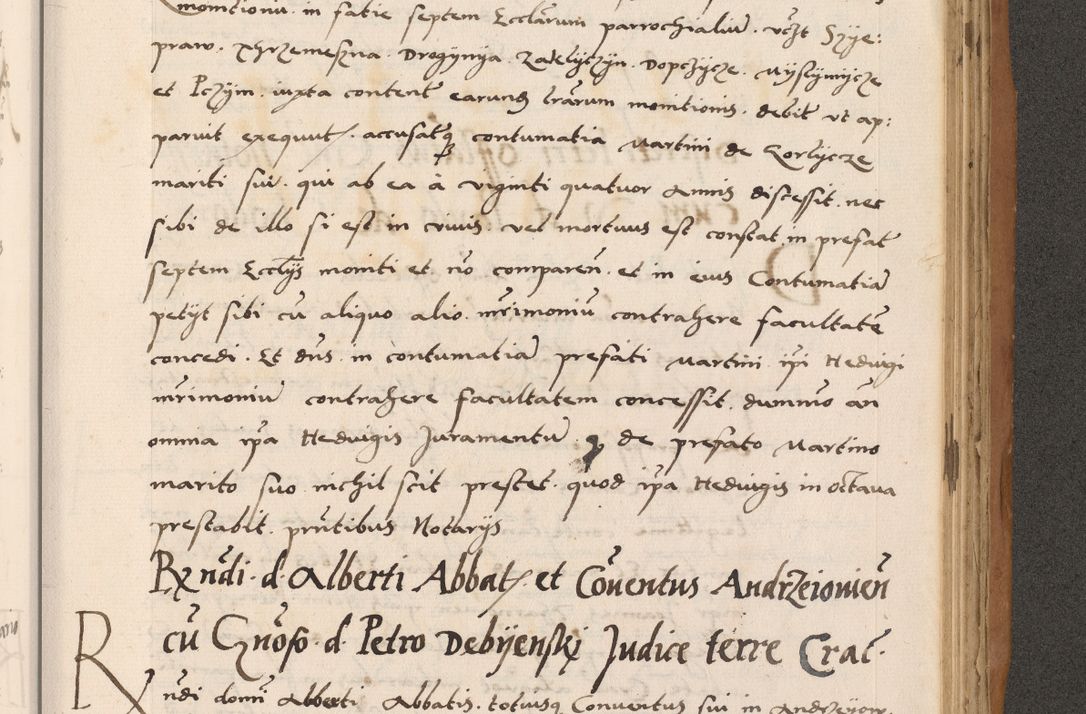 monitioniu. in facie septem Eccl̄arum parrochialiū. vz̄t Szye:
praw. Xhrzemeszna. Drogynya. Zakelyczyn. Dopczycze. Myslymycze
et Pczym. iuxta content̄ earund l̄rarum monitionis. debit̄ vt ap:
paruit exequut. accusatq contumatia Martini de Gorlycze
mariti sui. qui ab ea à viginti quatuor annis discessit. nec
sibi de illo si est in viuis. vel mortuus est constat. in prefat̄
septem Eccl̄ijs moniti et nō comparen̄. et in eius Contumatiā
petijt sibi cū aliquo alio. mr̄imoniū contrahere facultatē
concedi. Et dn̄s. in contumatiā prefati Martini ip̄i Heduigi
mr̄imoniū contrahere facultatem concessit. dummō an
omnia ip̄a Heduigis Juramentū. q de prefato Martino
marito suo nichil scit prestet. quod ip̄a Heduigis in octaua
prestabit. prn̄tibus Notarijs
Rn̄di. d. Alberti Abbat et Cōuentus Andrzeiouien̄
cū Gn̄oso d. Petro Debijenskj Judice terre Crac.
Rn̄di domi Alberti Abbatis. totiusq Conuentus sui in Andrzeyow.